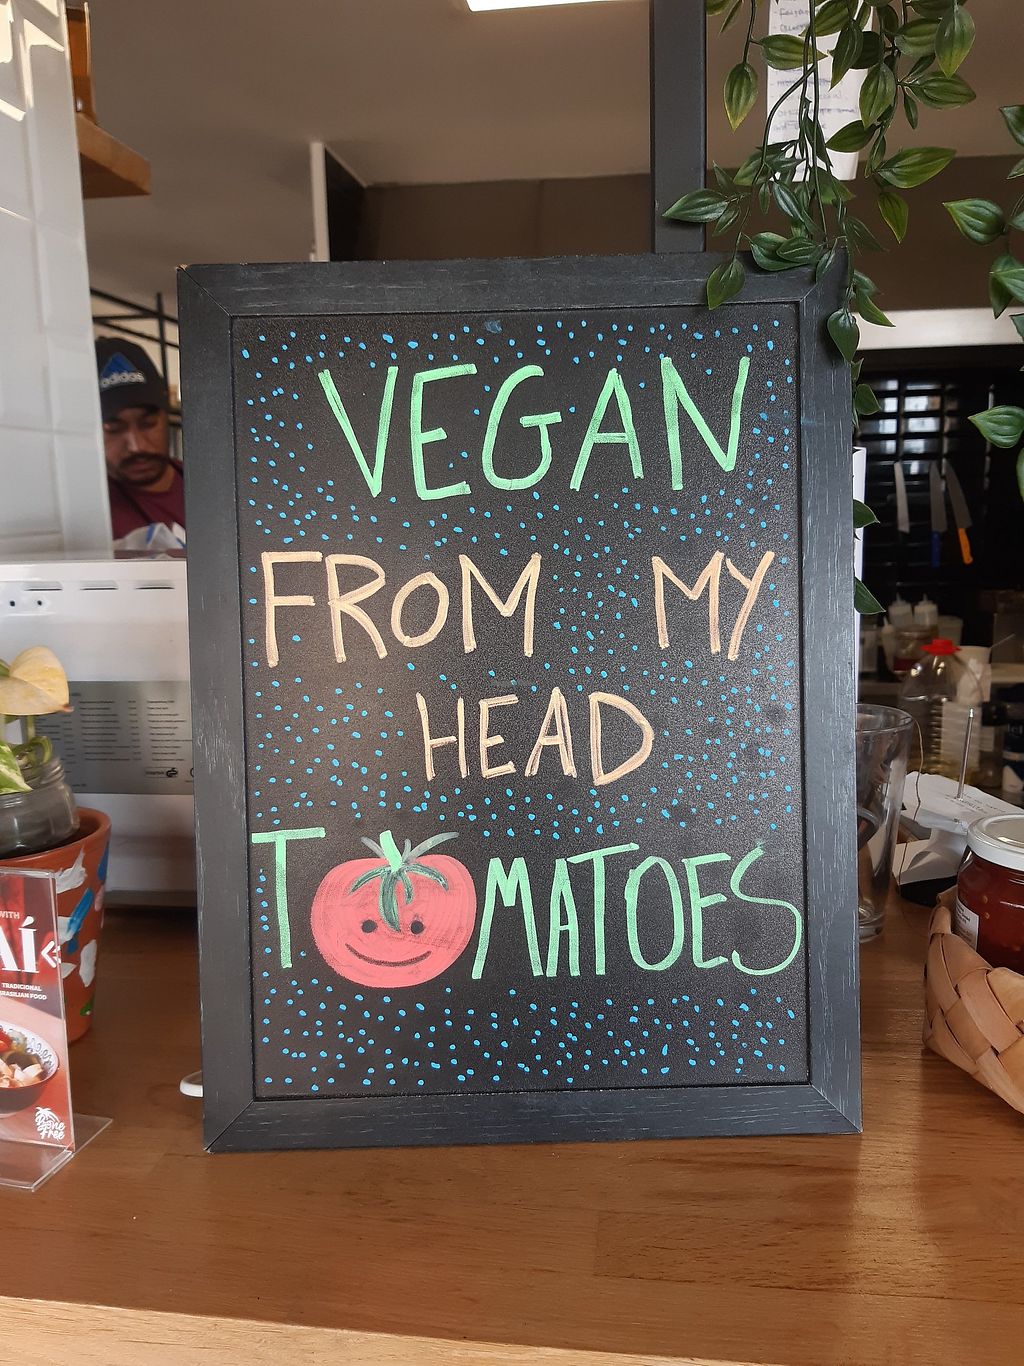 adidas
VEGAN
FROM MY
HEAD
TOMATOES
WITH
AÍ
TRADICIONAL
BRASILIAN FOOD
Bone
Free